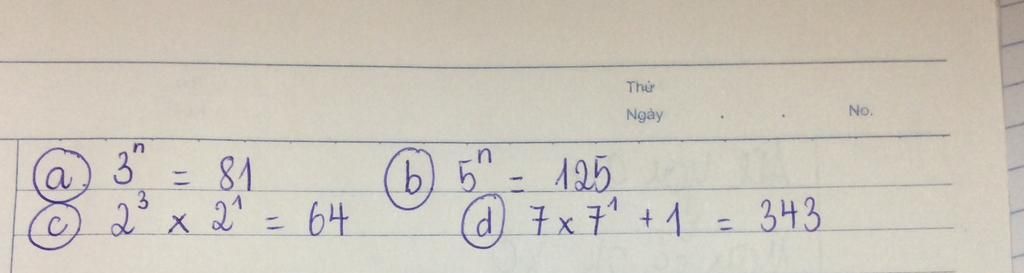 Thứ
Ngày . . No.
(a) 3ⁿ = 81 (b) 5ⁿ = 125
(c) 2³ × 2¹ = 64 (d) 7 × 7¹ + 1 = 343